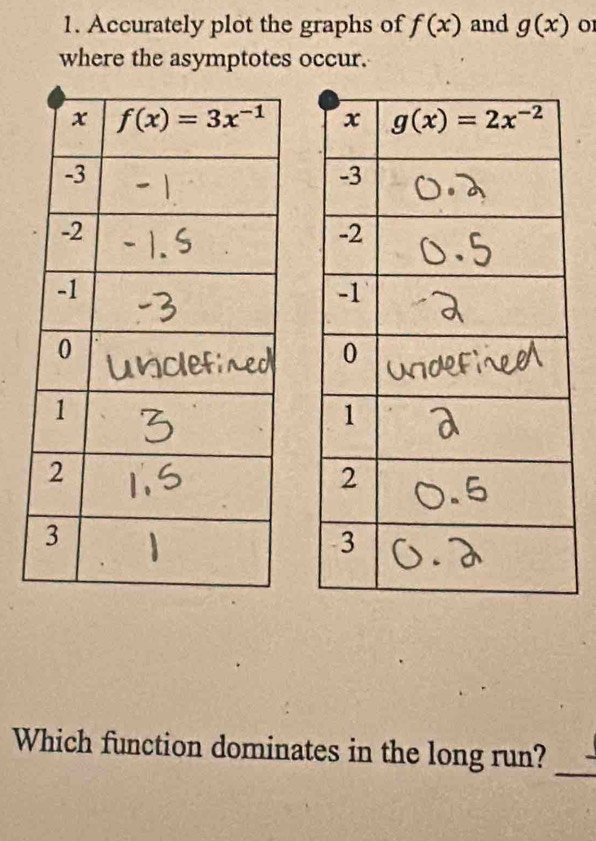 1. Accurately plot the graphs of f(x) and g(x)
where the asymptotes occur.
x f(x) = 3x⁻¹
-3 -1
-2 -1.5
-1 -3
0 undefined
1 3
2 1.5
3 1
x g(x) = 2x⁻²
-3 0.2
-2 0.5
-1 -2
0 undefined
1 2
2 0.5
3 0.2
Which function dominates in the long run?